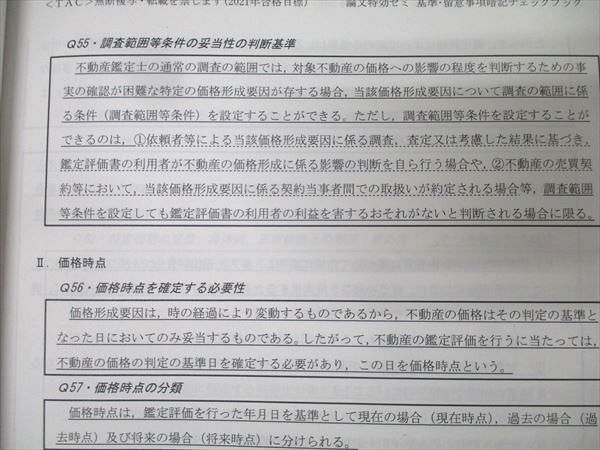 <TAC>無断複写・転載を禁じます(2021年合格目標)　論文特効ゼミ 基準・留意事項暗記チェックブック
Q55・調査範囲等条件の妥当性の判断基準
不動産鑑定士の通常の調査の範囲では，対象不動産の価格への影響の程度を判断するための事
実の確認が困難な特定の価格形成要因が存する場合，当該価格形成要因について調査の範囲に係
る条件（調査範囲等条件）を設定することができる。ただし，調査範囲等条件を設定することが
できるのは，①依頼者等による当該価格形成要因に係る調査，査定又は考慮した結果に基づき，
鑑定評価書の利用者が不動産の価格形成に係る影響の判断を自ら行う場合や，②不動産の売買契
約等において，当該価格形成要因に係る契約当事者間での取扱いが約定される場合等，調査範囲
等条件を設定しても鑑定評価書の利用者の利益を害するおそれがないと判断される場合に限る。
Ⅱ．価格時点
Q56・価格時点を確定する必要性
価格形成要因は，時の経過により変動するものであるから，不動産の価格はその判定の基準と
なった日においてのみ妥当するものである。したがって，不動産の鑑定評価を行うに当たっては，
不動産の価格の判定の基準日を確定する必要があり，この日を価格時点という。
Q57・価格時点の分類
価格時点は，鑑定評価を行った年月日を基準として現在の場合（現在時点），過去の場合（過
去時点）及び将来の場合（将来時点）に分けられる。